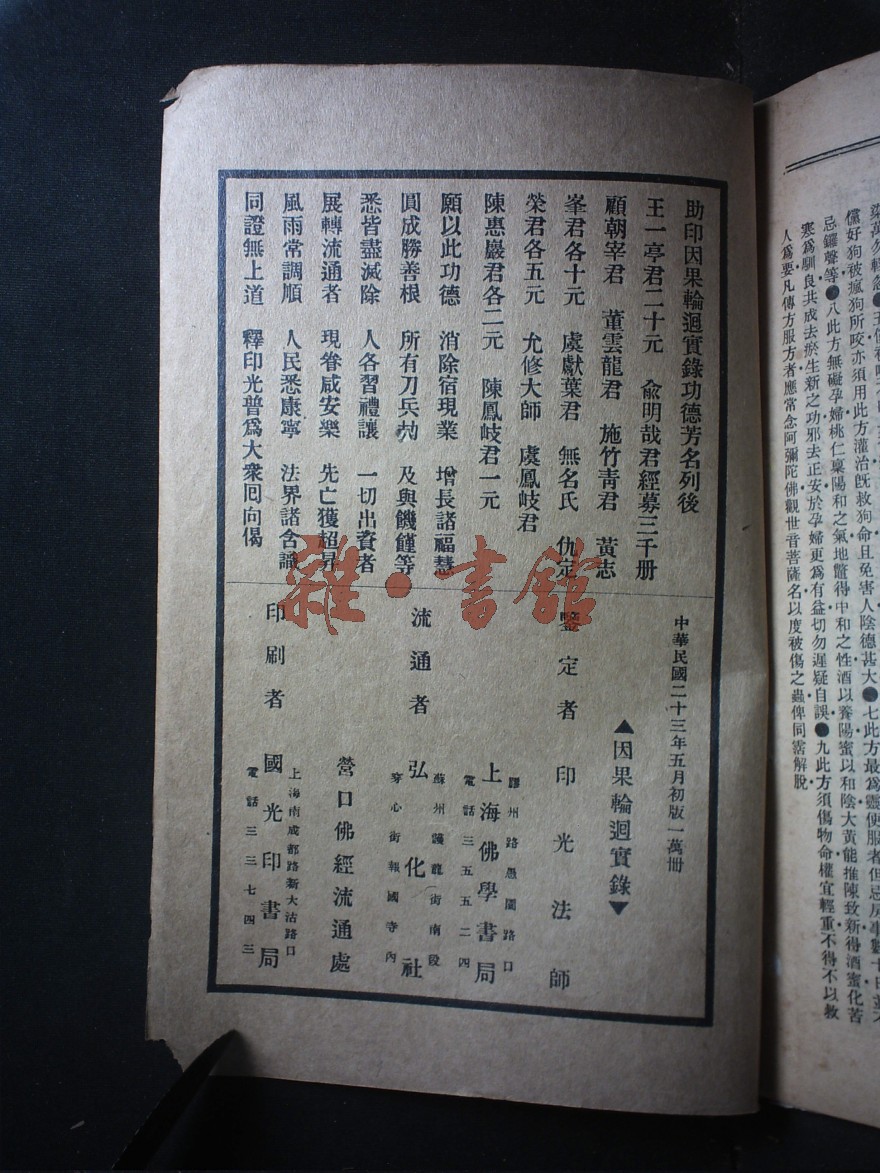 染萬勿輕忽
儻好狗被瘋狗所咬亦須用此方灌治旣救狗命且免害人陰德甚大●七此方最爲靈便服者但忌房事數十日並不
忌鑼聲等●八此方無礙孕婦桃仁稟陽和之氣地鼈得中和之性酒以養陽蜜以和陰大黃能推陳致新得酒蜜化苦
寒爲馴良共成去瘀生新之功邪去正安於孕婦更爲有益切勿遲疑自誤●九此方須傷物命權宜輕重不得不以救
人爲要凡傳方服方者應常念阿彌陀佛觀世音菩薩名以度被傷之蟲俾同霑解脫
助印因果輪迴實錄功德芳名列後
王一亭君二十元 兪明哉君經募三千册
顧朝宰君 董雲龍君 施竹靑君 黃志
峯君各十元 虞獻葉君 無名氏 仇定
榮君各五元 允修大師 虞鳳岐君
陳惠巖君各二元 陳鳳岐君一元
願以此功德 消除宿現業 增長諸福慧
圓成勝善根 所有刀兵劫 及與饑饉等
悉皆盡滅除 人各習禮讓 一切出資者
展轉流通者 現眷咸安樂 先亡獲超昇
風雨常調順 人民悉康寧 法界諸含識
同證無上道 釋印光普爲大衆囘向偈
中華民國二十三年五月初版一萬册
▲因果輪迴實錄▼
鑒定者 印光法師
膠州路愚園路口
上海佛學書局
電話三五五二四
流通者
蘇州護龍街南段
弘化社
穿心街報國寺內
營口佛經流通處
印刷者
上海南成都路新大沽路口
國光印書局
電話三三七四三
雜·書館